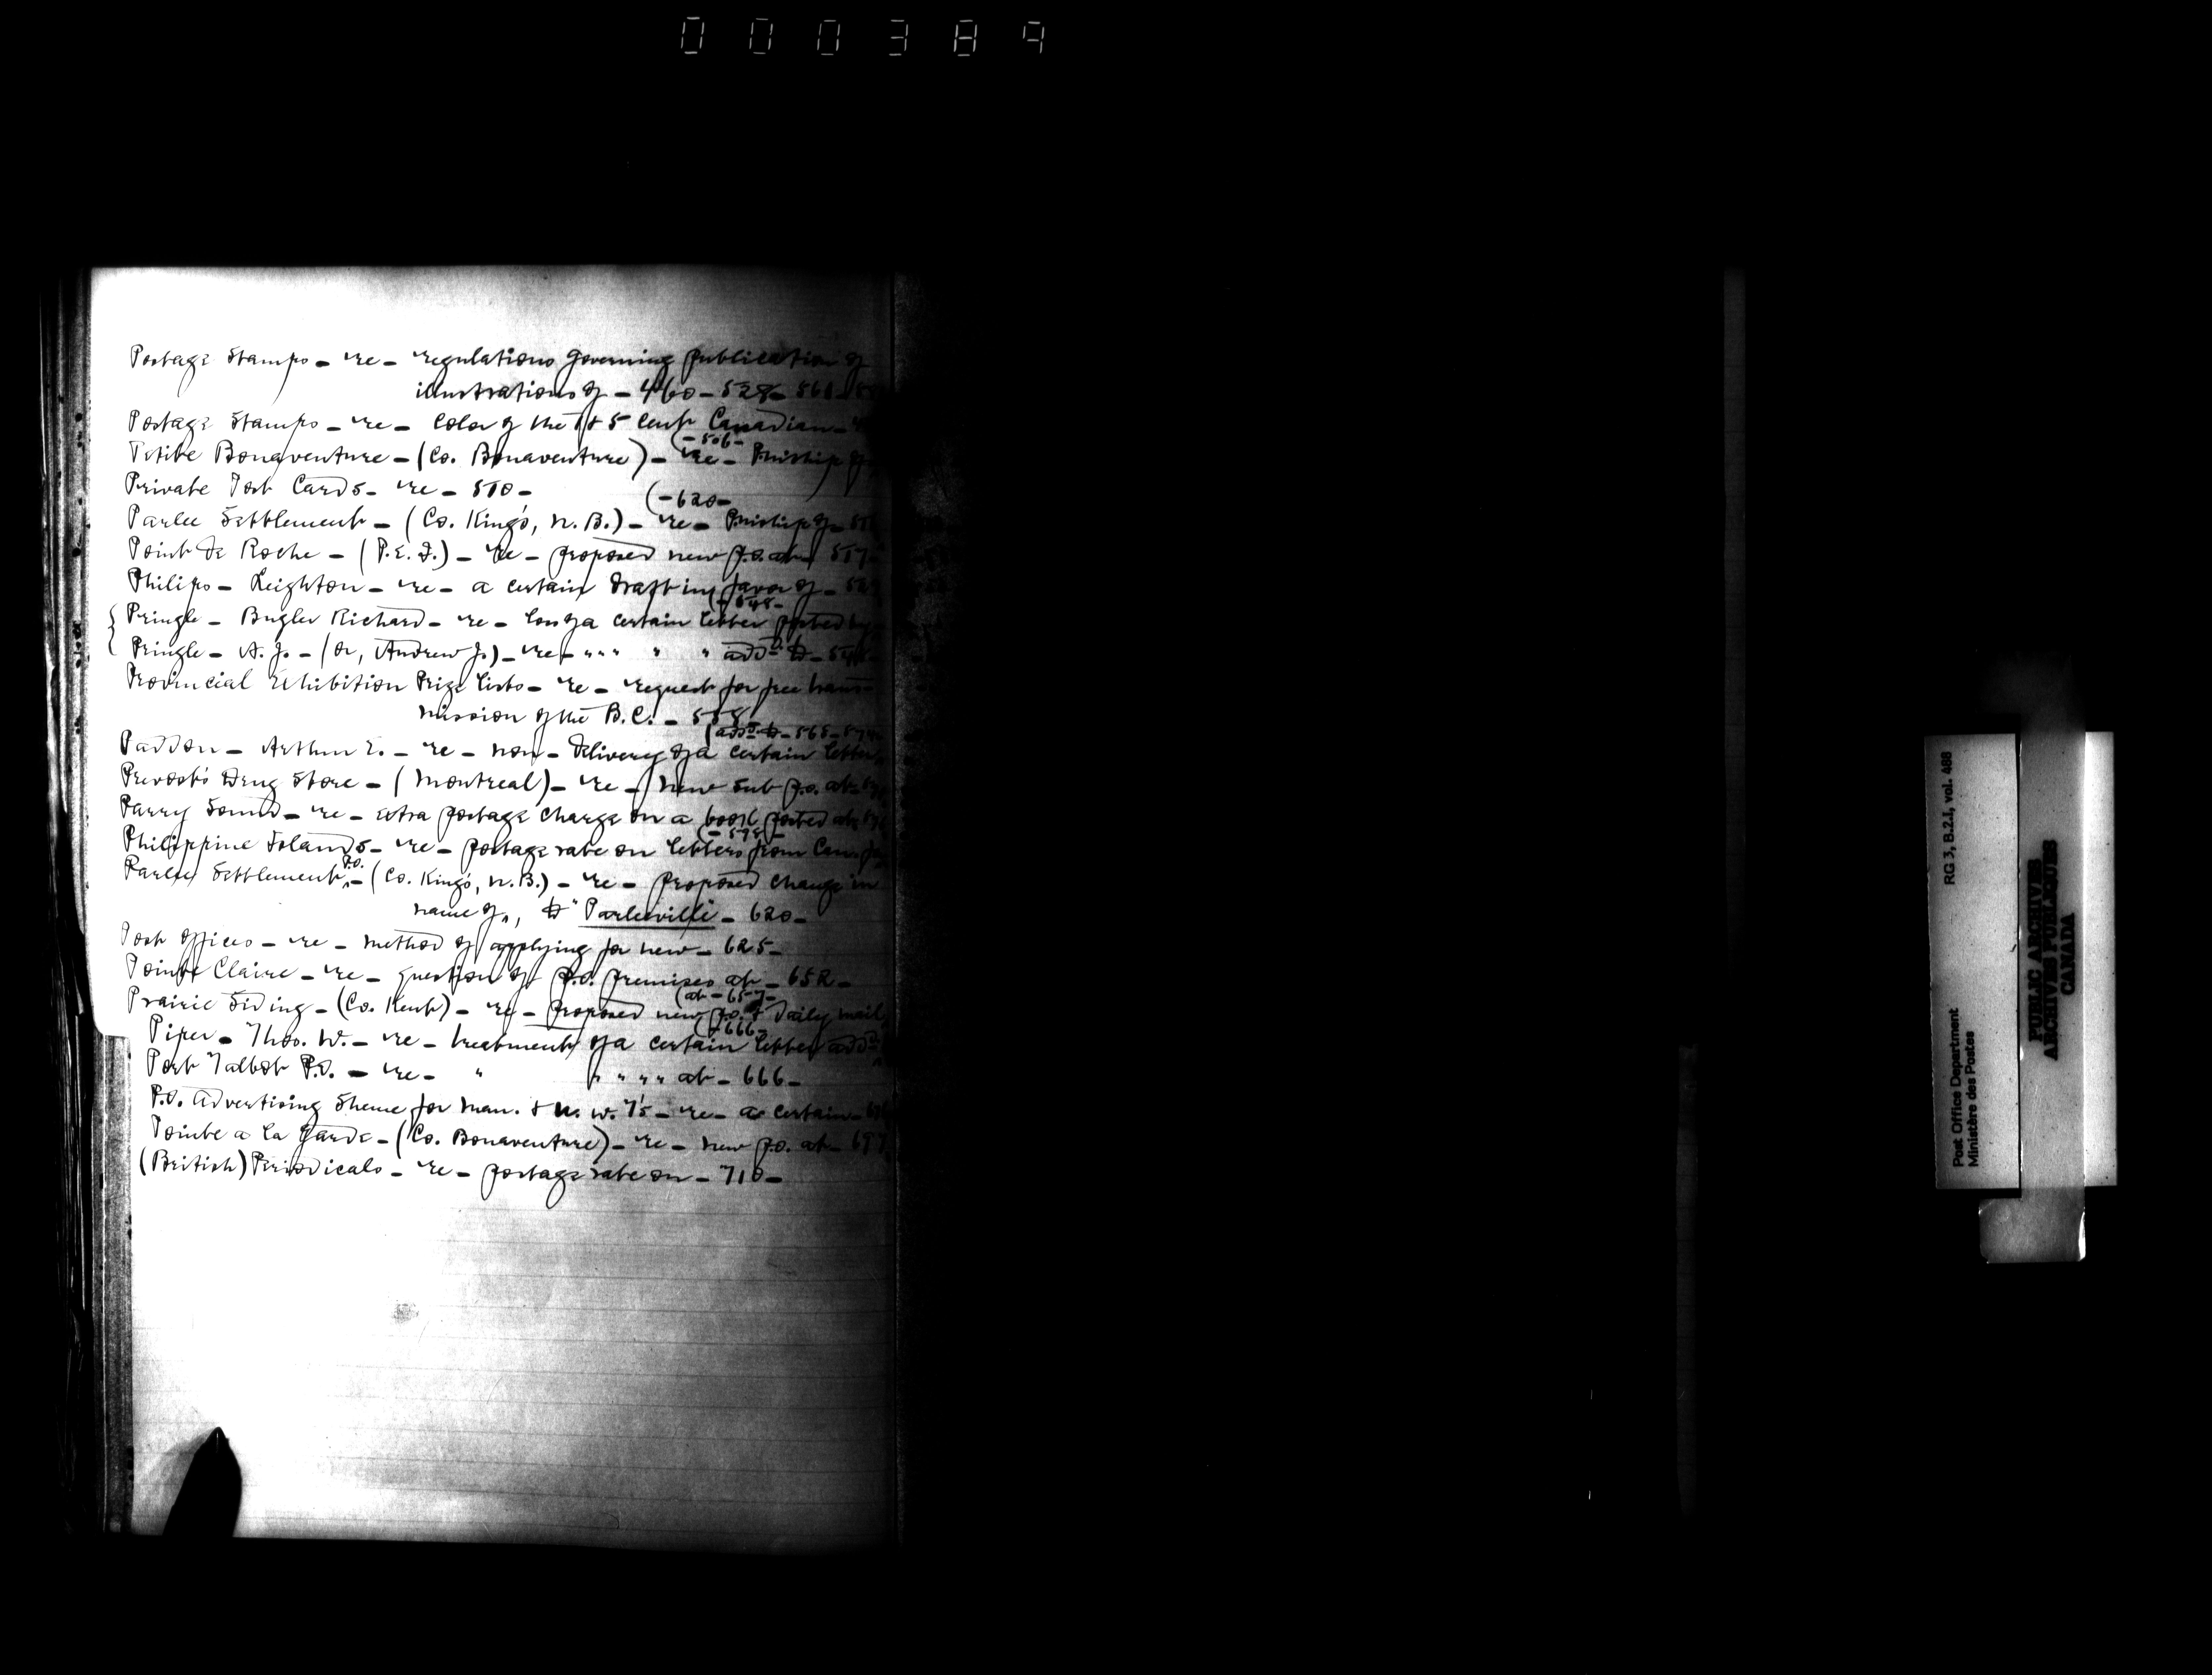 000389
Postage Stamps - re - regulations governing publication of
illustrations of - 460 - 528 - 561
Postage Stamps - re - color of the 1 & 5 cent Canadian -
(- 506 -
Petite Bonaventure - (Co. Bonaventure) - re - P.M.ship of
Private Post Cards - re - 510 -
(- 620 -
Parlee Settlement - (Co. King's, N.B.) - re - P.M.ship of -
Point de Roche - (P.E.I.) - re - proposed new p.o. at - 517 -
Philips - Leighton - re - a certain draft in favor of -
(- 548 -
Pringle - Bugler Richard - re - loss of a certain letter posted by
Pringle - A. J. - (or, Andrew J.) - re - " " " " " add'd to -
Provincial Exhibition Prize Lists - re - request for free trans-
mission of the B.C. - 558 -
(add'd to - 565 -
Paddon - Arthur E. - re - non-delivery of a certain letter
Prevost's Drug Store - (Montreal) - re - new sub p.o. at -
Parry Sound - re - extra postage charge on a book posted at -
(- 598 -
Philippine Islands - re - postage rate on letters from Can. for
Parlee Settlement P.O. - (Co. King's, N.B.) - re - proposed change in
name of, to "Parleeville - 620 -
Post Offices - re - method of applying for new - 625 -
Pointe Claire - re - question of p.o. premises at - 652 -
(at - 657 -
Prairie Siding - (Co. Kent) - re - proposed new p.o. & daily mail
(- 666 -
Piper - Thos. W. - re - treatment of a certain letter add'd
Port Talbot P.O. - re - " " " " " at - 666 -
P.O. Advertising Sheme for Man. & N. W. T's - re - a certain -
Pointe a la Garde - (Co. Bonaventure) - re - new p.o. at - 697
(British) Periodicals - re - postage rate on - 710 -
RG 3, B.2.I, vol. 488
Post Office Department
Ministère des Postes
PUBLIC ARCHIVES
ARCHIVES PUBLIQUES
CANADA